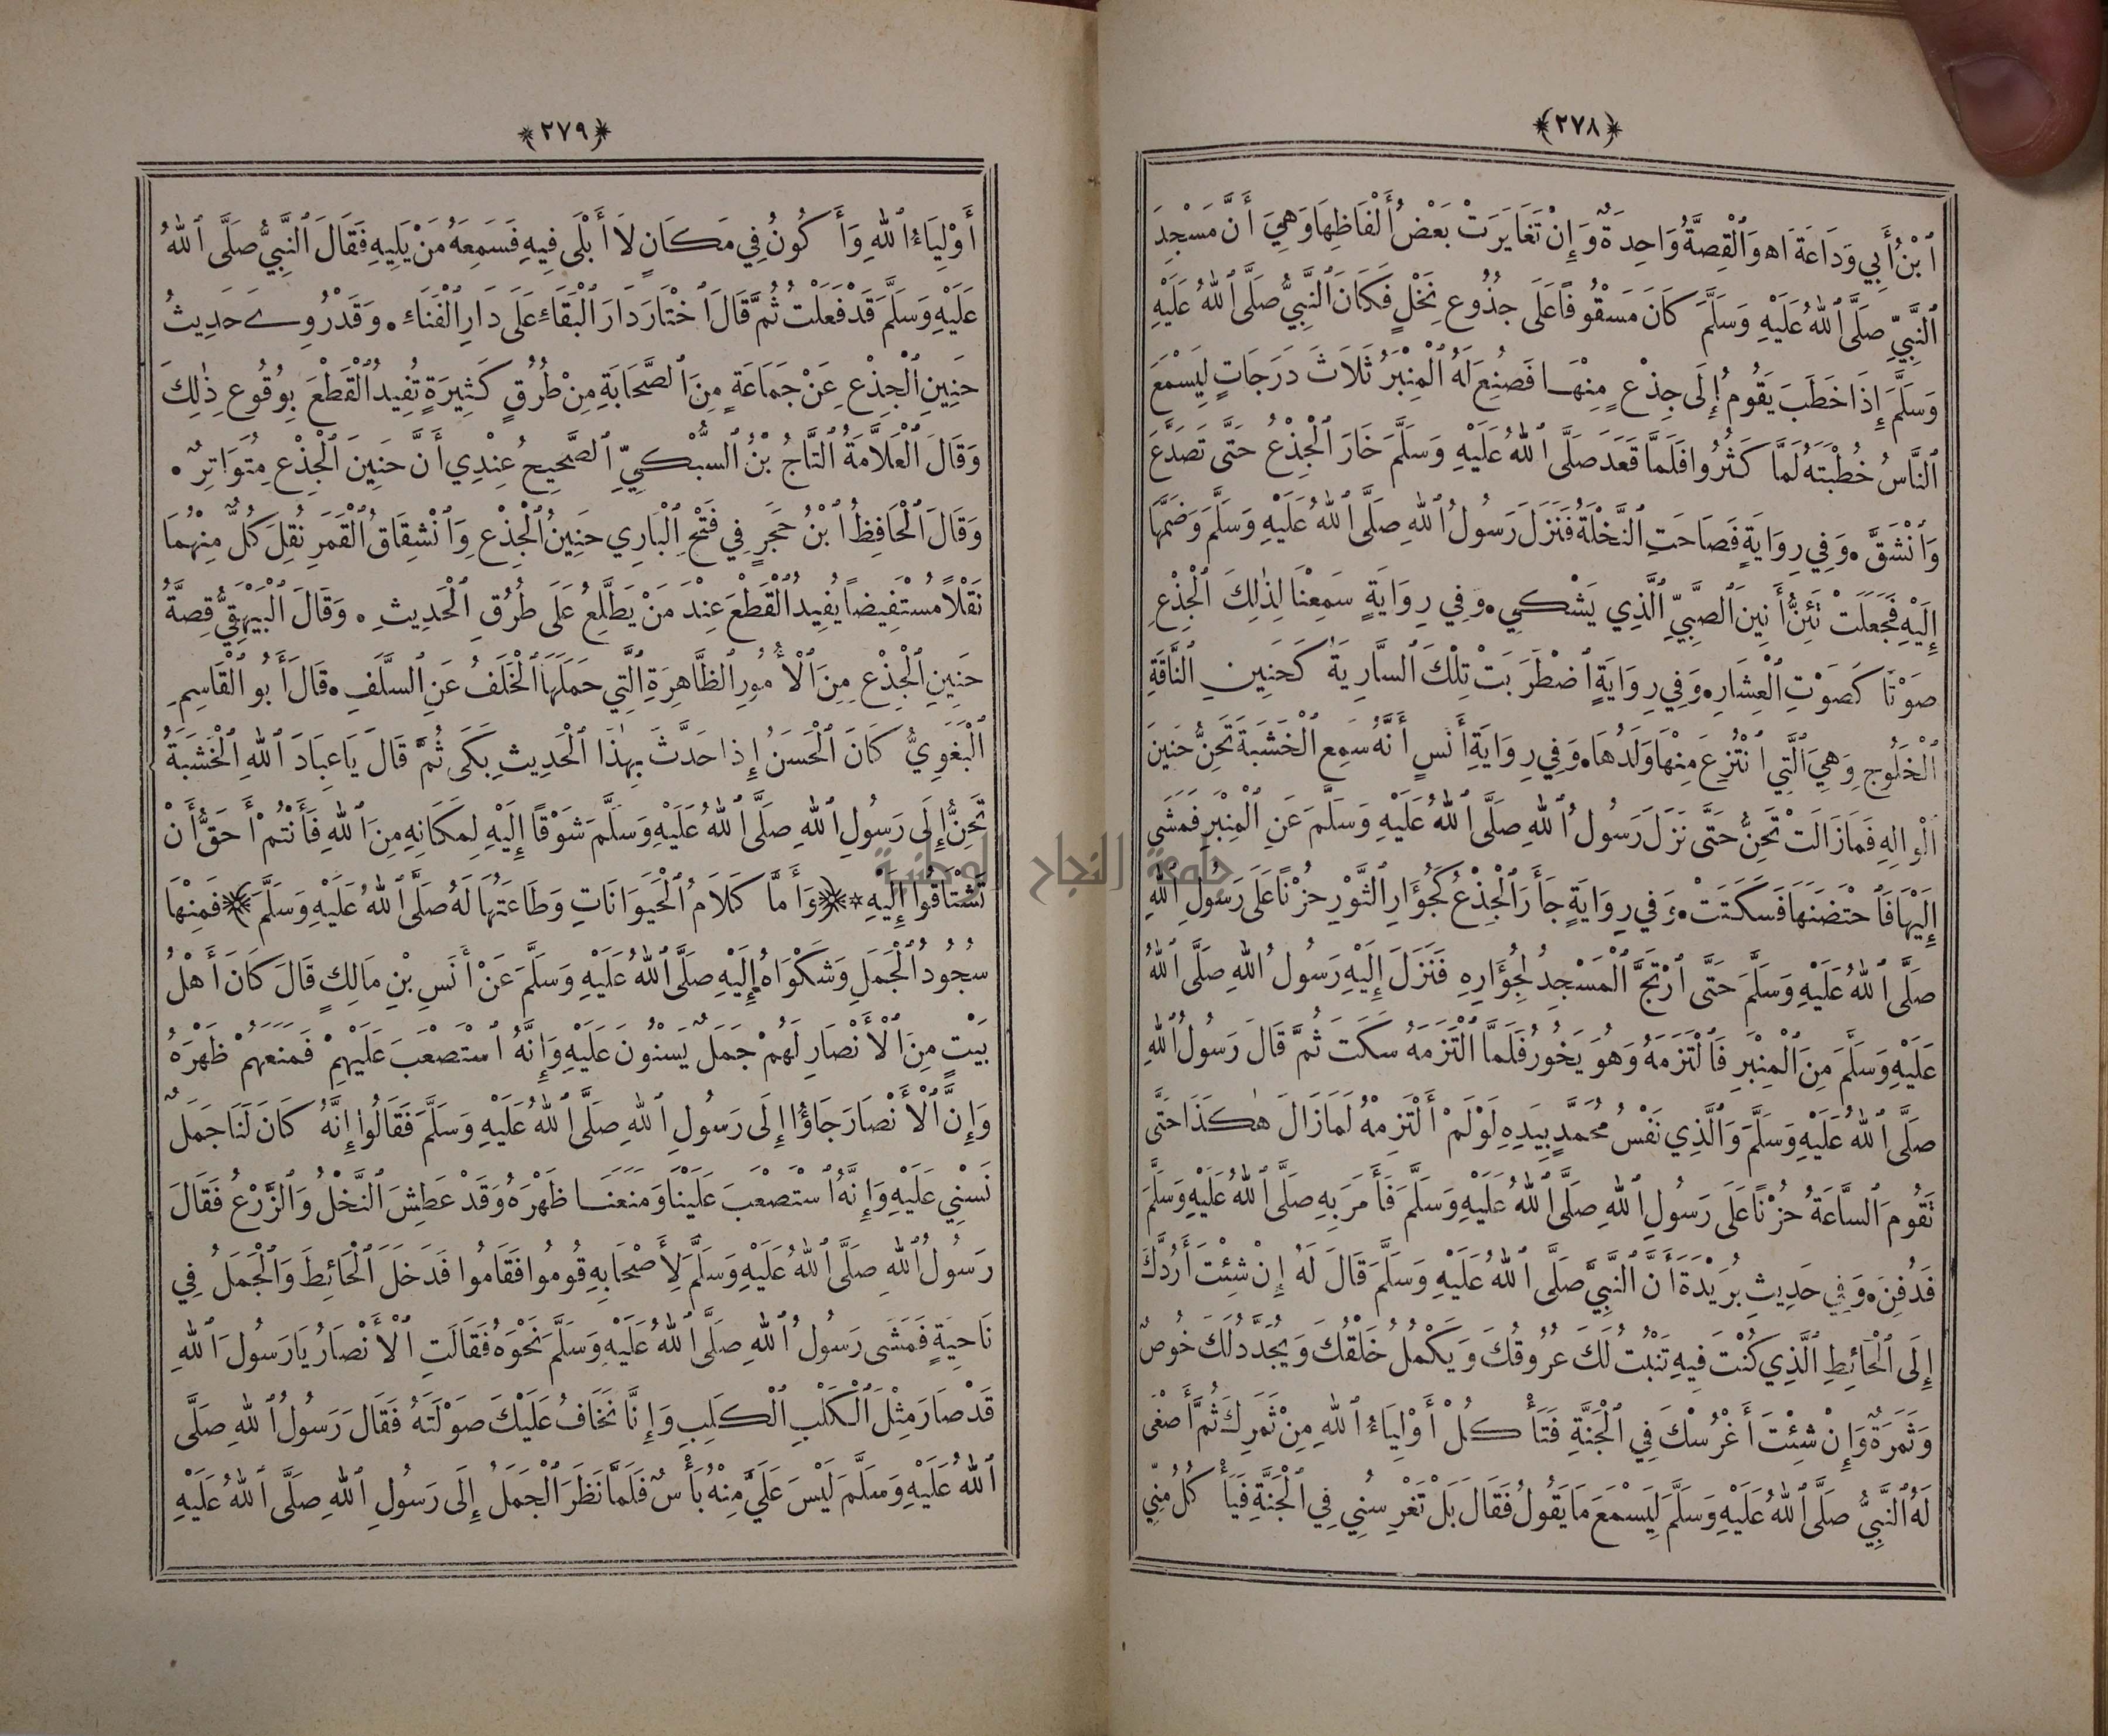 ﴿٢٧٨﴾
ٱبْنُ أَبِي وَدَاعَةَ اهـ وَٱلْقِصَّةُ وَاحِدَةٌ وَإِنْ تَغَايَرَتْ بَعْضُ أَلْفَاظِهَا وَهِيَ أَنَّ مَسْجِدَ
ٱلنَّبِيِّ صَلَّى ٱللهُ عَلَيْهِ وَسَلَّمَ كَانَ مَسْقُوفًا عَلَى جُذُوعِ نَخْلٍ فَكَانَ ٱلنَّبِيُّ صَلَّى ٱللهُ عَلَيْهِ
وَسَلَّمَ إِذَا خَطَبَ يَقُومُ إِلَى جِذْعٍ مِنْهَا فَصُنِعَ لَهُ ٱلْمِنْبَرُ ثَلَاثَ دَرَجَاتٍ لِيَسْمَعَ
ٱلنَّاسُ خُطْبَتَهُ لَمَّا كَثُرُوا فَلَمَّا قَعَدَ صَلَّى ٱللهُ عَلَيْهِ وَسَلَّمَ خَارَ ٱلْجِذْعُ حَتَّى تَصَدَّعَ
وَٱنْشَقَّ • وَفِي رِوَايَةٍ فَصَاحَتِ ٱلنَّخْلَةُ فَنَزَلَ رَسُولُ ٱللهِ صَلَّى ٱللهُ عَلَيْهِ وَسَلَّمَ وَضَمَّهَا
إِلَيْهِ فَجَعَلَتْ تَئِنُّ أَنِينَ ٱلصَّبِيِّ ٱلَّذِي يَشْكِي • وَفِي رِوَايَةٍ سَمِعْنَا لِذٰلِكَ ٱلْجِذْعِ
صَوْتًا كَصَوْتِ ٱلْعِشَارِ • وَفِي رِوَايَةٍ ٱضْطَرَبَتْ تِلْكَ ٱلسَّارِيَةُ كَحَنِينِ ٱلنَّاقَةِ
ٱلْخَلُوجِ وَهِيَ ٱلَّتِي ٱنْتُزِعَ مِنْهَا وَلَدُهَا • وَفِي رِوَايَةِ أَنَسٍ أَنَّهُ سَمِعَ ٱلْخَشَبَةَ تَحِنُّ حَنِينَ
ٱلْوَالِهِ فَمَا زَالَتْ تَحِنُّ حَتَّى نَزَلَ رَسُولُ ٱللهِ صَلَّى ٱللهُ عَلَيْهِ وَسَلَّمَ عَنِ ٱلْمِنْبَرِ فَمَشَى
إِلَيْهَا فَٱحْتَضَنَهَا فَسَكَتَتْ • وَفِي رِوَايَةٍ جَأَرَ ٱلْجِذْعُ كَجُؤَارِ ٱلثَّوْرِ حُزْنًا عَلَى رَسُولِ ٱللهِ
صَلَّى ٱللهُ عَلَيْهِ وَسَلَّمَ حَتَّى ٱرْتَجَّ ٱلْمَسْجِدُ لِجُؤَارِهِ فَنَزَلَ إِلَيْهِ رَسُولُ ٱللهِ صَلَّى ٱللهُ
عَلَيْهِ وَسَلَّمَ مِنَ ٱلْمِنْبَرِ فَٱلْتَزَمَهُ وَهُوَ يَخُورُ فَلَمَّا ٱلْتَزَمَهُ سَكَتَ ثُمَّ قَالَ رَسُولُ ٱللهِ
صَلَّى ٱللهُ عَلَيْهِ وَسَلَّمَ وَٱلَّذِي نَفْسُ مُحَمَّدٍ بِيَدِهِ لَوْ لَمْ أَلْتَزِمْهُ لَمَا زَالَ هٰكَذَا حَتَّى
تَقُومَ ٱلسَّاعَةُ حُزْنًا عَلَى رَسُولِ ٱللهِ صَلَّى ٱللهُ عَلَيْهِ وَسَلَّمَ فَأَمَرَ بِهِ صَلَّى ٱللهُ عَلَيْهِ وَسَلَّمَ
فَدُفِنَ • وَفِي حَدِيثِ بُرَيْدَةَ أَنَّ ٱلنَّبِيَّ صَلَّى ٱللهُ عَلَيْهِ وَسَلَّمَ قَالَ لَهُ إِنْ شِئْتَ أَرُدُّكَ
إِلَى ٱلْحَائِطِ ٱلَّذِي كُنْتَ فِيهِ تَنْبُتُ لَكَ عُرُوقُكَ وَيَكْمُلُ خَلْقُكَ وَيُجَدَّدُ لَكَ خُوصٌ
وَثَمَرَةٌ وَإِنْ شِئْتَ أَغْرُسْكَ فِي ٱلْجَنَّةِ فَتَأْكُلْ أَوْلِيَاءُ ٱللهِ مِنْ ثَمَرِكَ ثُمَّ أَصْغَى
لَهُ ٱلنَّبِيُّ صَلَّى ٱللهُ عَلَيْهِ وَسَلَّمَ لِيَسْمَعَ مَا يَقُولُ فَقَالَ بَلْ تَغْرِسُنِي فِي ٱلْجَنَّةِ فَيَأْكُلُ مِنِّي
﴿٢٧٩﴾
أَوْلِيَاءُ ٱللهِ وَأَكُونُ فِي مَكَانٍ لَا أَبْلَى فِيهِ فَسَمِعَهُ مَنْ يَلِيهِ فَقَالَ ٱلنَّبِيُّ صَلَّى ٱللهُ
عَلَيْهِ وَسَلَّمَ قَدْ فَعَلْتُ ثُمَّ قَالَ ٱخْتَارَ دَارَ ٱلْبَقَاءِ عَلَى دَارِ ٱلْفَنَاءِ • وَقَدْ رُوِيَ حَدِيثُ
حَنِينِ ٱلْجِذْعِ عَنْ جَمَاعَةٍ مِنَ ٱلصَّحَابَةِ مِنْ طُرُقٍ كَثِيرَةٍ تُفِيدُ ٱلْقَطْعَ بِوُقُوعِ ذٰلِكَ
وَقَالَ ٱلْعَلَّامَةُ ٱلتَّاجُ بْنُ ٱلسُّبْكِيِّ ٱلصَّحِيحُ عِنْدِي أَنَّ حَنِينَ ٱلْجِذْعِ مُتَوَاتِرٌ •
وَقَالَ ٱلْحَافِظُ ٱبْنُ حَجَرٍ فِي فَتْحِ ٱلْبَارِي حَنِينُ ٱلْجِذْعِ وَٱنْشِقَاقُ ٱلْقَمَرِ نُقِلَ كُلٌّ مِنْهُمَا
نَقْلًا مُسْتَفِيضًا يُفِيدُ ٱلْقَطْعَ عِنْدَ مَنْ يَطَّلِعُ عَلَى طُرُقِ ٱلْحَدِيثِ • وَقَالَ ٱلْبَيْهَقِيُّ قِصَّةُ
حَنِينِ ٱلْجِذْعِ مِنَ ٱلْأُمُورِ ٱلظَّاهِرَةِ ٱلَّتِي حَمَلَهَا ٱلْخَلَفُ عَنِ ٱلسَّلَفِ • قَالَ أَبُو ٱلْقَاسِمِ
ٱلْبَغَوِيُّ كَانَ ٱلْحَسَنُ إِذَا حَدَّثَ بِهٰذَا ٱلْحَدِيثِ بَكَى ثُمَّ قَالَ يَا عِبَادَ ٱللهِ ٱلْخَشَبَةُ
تَحِنُّ إِلَى رَسُولِ ٱللهِ صَلَّى ٱللهُ عَلَيْهِ وَسَلَّمَ شَوْقًا إِلَيْهِ لِمَكَانِهِ مِنَ ٱللهِ فَأَنْتُمْ أَحَقُّ أَنْ
تَشْتَاقُوا إِلَيْهِ * ﴿وَأَمَّا كَلَامُ ٱلْحَيَوَانَاتِ وَطَاعَتُهَا لَهُ صَلَّى ٱللهُ عَلَيْهِ وَسَلَّمَ﴾ فَمِنْهَا
سُجُودُ ٱلْجَمَلِ وَشَكْوَاهُ إِلَيْهِ صَلَّى ٱللهُ عَلَيْهِ وَسَلَّمَ عَنْ أَنَسِ بْنِ مَالِكٍ قَالَ كَانَ أَهْلُ
بَيْتٍ مِنَ ٱلْأَنْصَارِ لَهُمْ جَمَلٌ يَسْنُونَ عَلَيْهِ وَإِنَّهُ ٱسْتَصْعَبَ عَلَيْهِمْ فَمَنَعَهُمْ ظَهْرَهُ
وَإِنَّ ٱلْأَنْصَارَ جَاؤُا إِلَى رَسُولِ ٱللهِ صَلَّى ٱللهُ عَلَيْهِ وَسَلَّمَ فَقَالُوا إِنَّهُ كَانَ لَنَا جَمَلٌ
نَسْنِي عَلَيْهِ وَإِنَّهُ ٱسْتَصْعَبَ عَلَيْنَا وَمَنَعَنَا ظَهْرَهُ وَقَدْ عَطِشَ ٱلنَّخْلُ وَٱلزَّرْعُ فَقَالَ
رَسُولُ ٱللهِ صَلَّى ٱللهُ عَلَيْهِ وَسَلَّمَ لِأَصْحَابِهِ قُومُوا فَقَامُوا فَدَخَلَ ٱلْحَائِطَ وَٱلْجَمَلُ فِي
نَاحِيَةٍ فَمَشَى رَسُولُ ٱللهِ صَلَّى ٱللهُ عَلَيْهِ وَسَلَّمَ نَحْوَهُ فَقَالَتِ ٱلْأَنْصَارُ يَا رَسُولَ ٱللهِ
قَدْ صَارَ مِثْلَ ٱلْكَلْبِ ٱلْكَلِبِ وَإِنَّا نَخَافُ عَلَيْكَ صَوْلَتَهُ فَقَالَ رَسُولُ ٱللهِ صَلَّى
ٱللهُ عَلَيْهِ وَسَلَّمَ لَيْسَ عَلَيَّ مِنْهُ بَأْسٌ فَلَمَّا نَظَرَ ٱلْجَمَلُ إِلَى رَسُولِ ٱللهِ صَلَّى ٱللهُ عَلَيْهِ
جامعة النجاح الوطنية